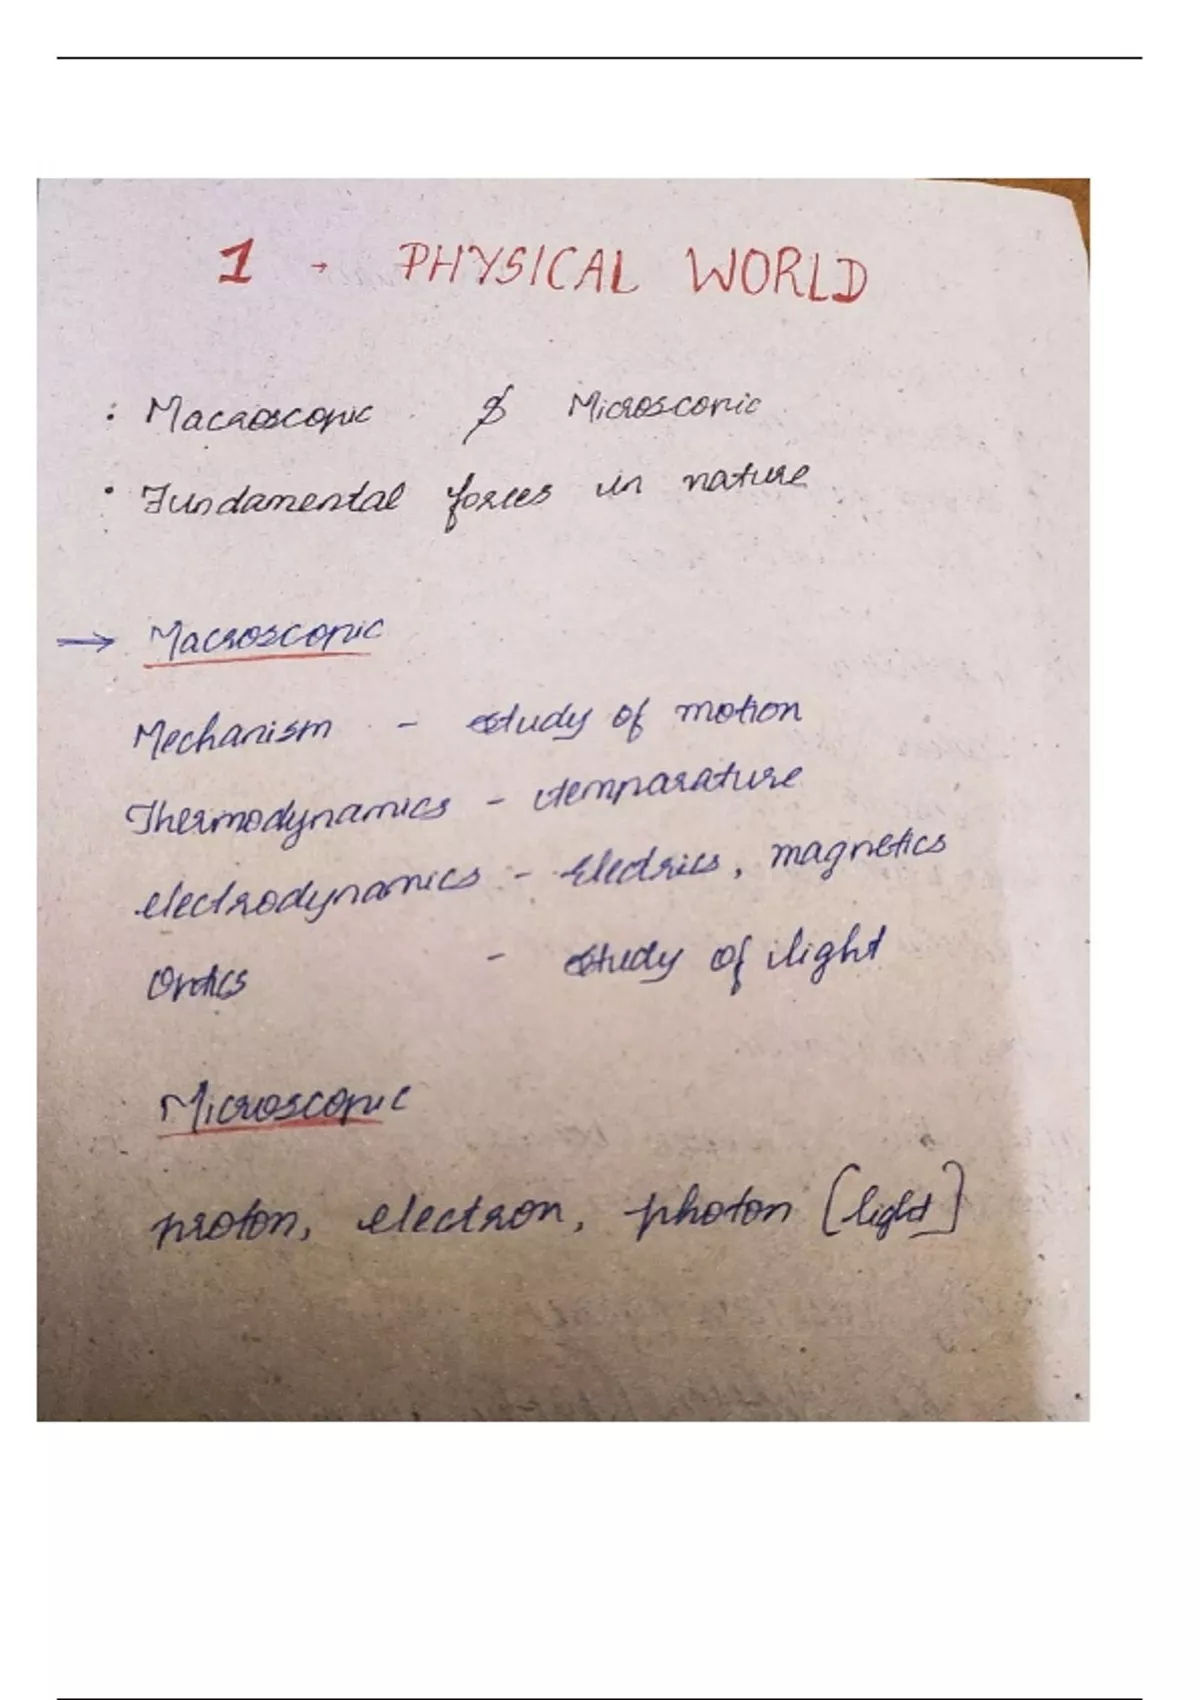 1 - PHYSICAL WORLD
: Macroscopic & Microscopic
• Fundamental forces in nature
→ Macroscopic
Mechanism - study of motion
Thermodynamics - temparature
electrodynamics - Electrics, magnetics
Optics - study of light
Microscopic
proton, electron, photon [light]